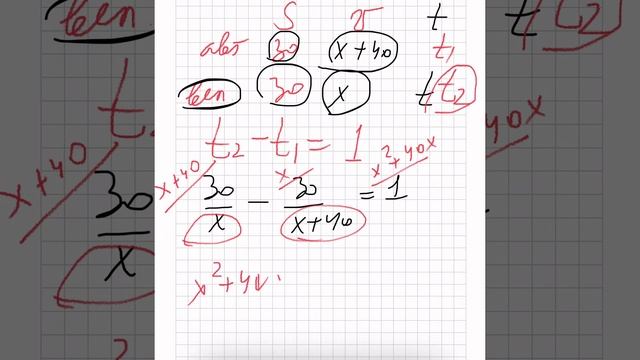 S v t
авт 30 x+40 t₁
вел 30 x t t₂
t₂ - t₁ = 1
x+40 x x²+40x
30/x - 30/(x+40) = 1
x²+40